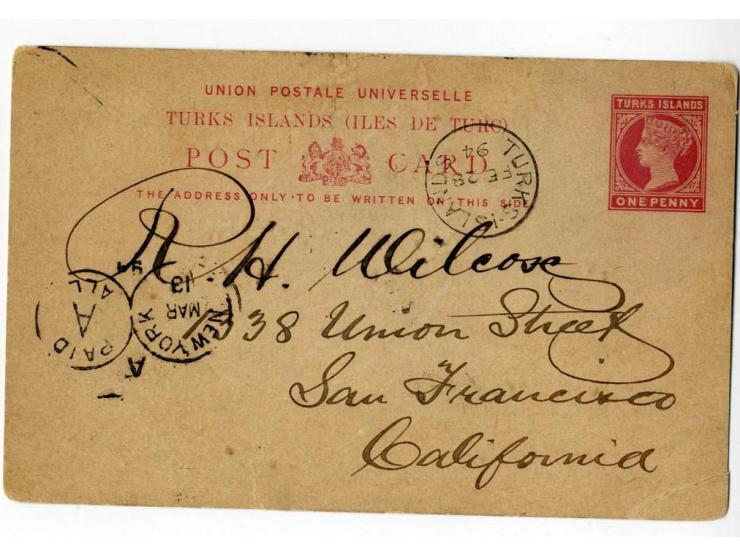 UNION POSTALE UNIVERSELLE
TURKS ISLANDS (ILES DE TURC)
POST CARD
THE ADDRESS ONLY TO BE WRITTEN ON THIS SIDE
TURKS ISLANDS
ONE PENNY
TURKS-ISLANDS
FE 28
94
H. Wilcox
1338 Union Street
San Francisco
California
PAID
A
ALL
NEW YORK
MAR
13
A